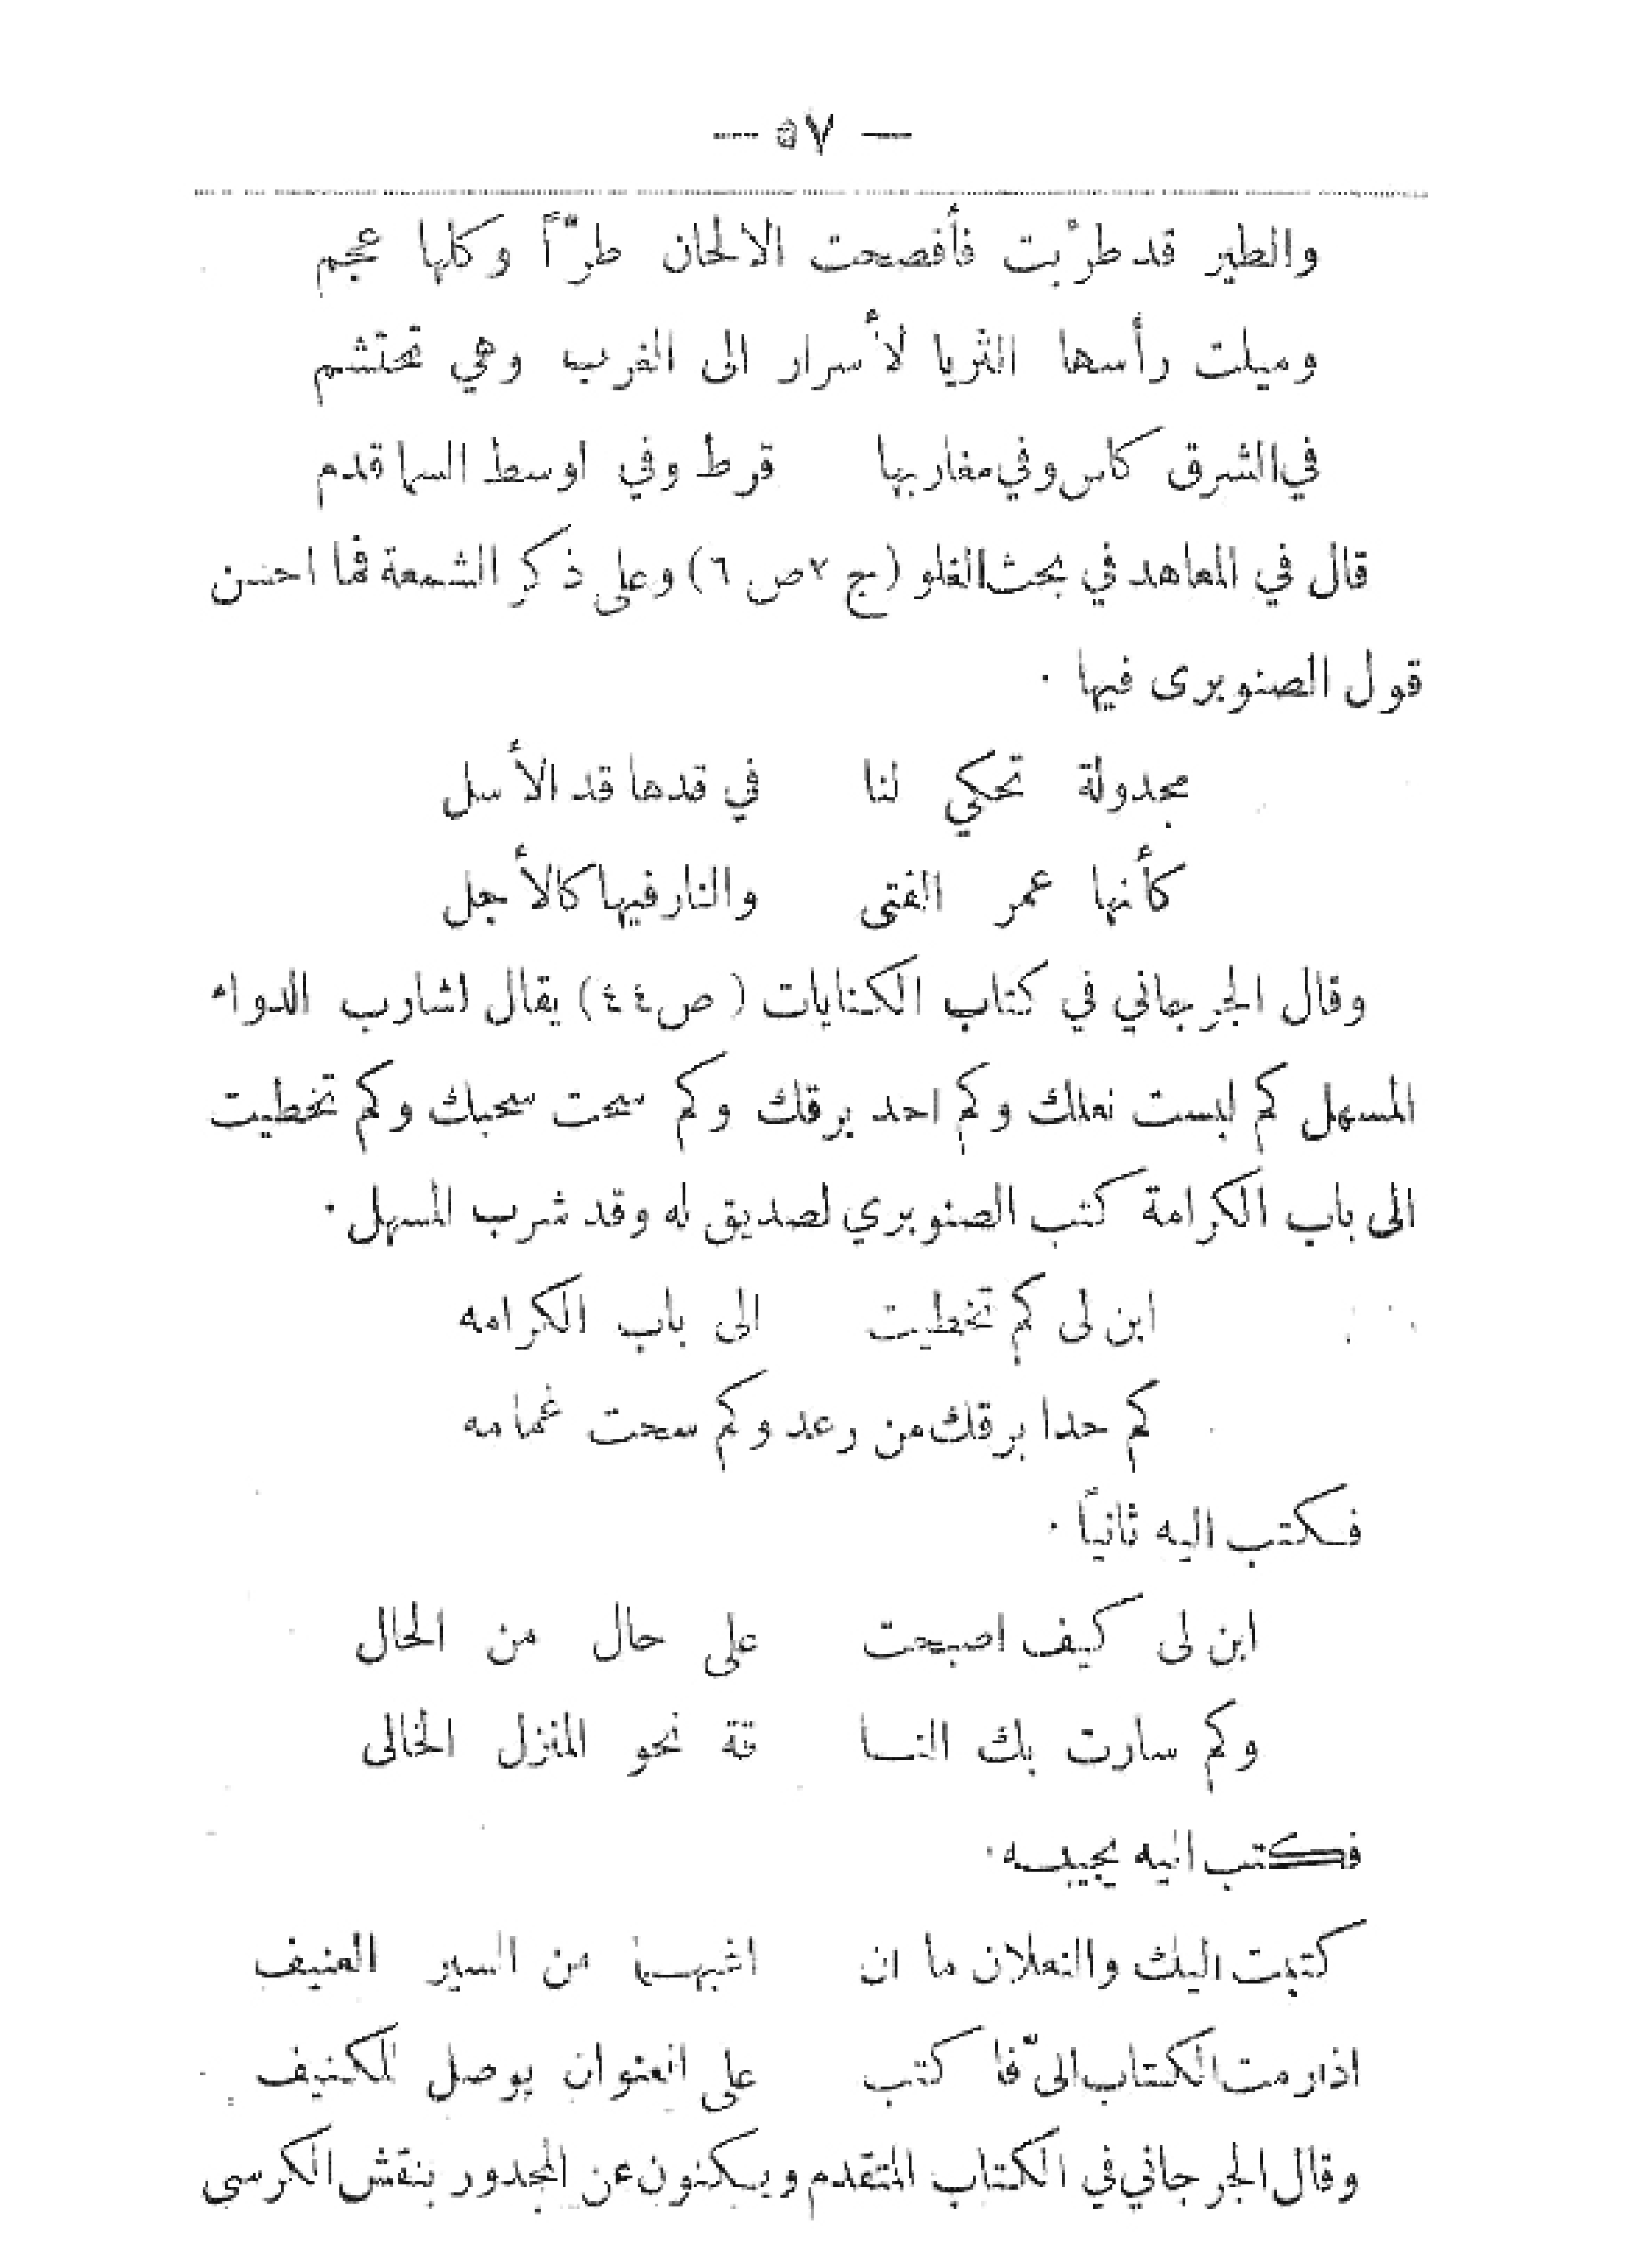 — ٥٧ —
والطير قد طرْبت فأفصحت الالحان طرّاً وكلها عجم
وميلت رأسها الثريا لأسرار الى الغرب وهي تحتشم
في الشرق كاس وفي مغاربها قرط وفي اوسط السما قدم
قال في المعاهد في بحث الغلو (ج ٢ ص ٦) وعلى ذكر الشمعة فما احسن
قول الصنوبرى فيها ·
مجدولة تحكي لنا في قدها قد الأسل
كأنها عمر الفتى والنار فيها كالأجل
وقال الجرجاني في كتاب الكنايات ( ص٤٤) يقال لشارب الدواء
المسهل كم لبست نعلك وكم احد برقك وكم سحت سحبك وكم تخطيت
الى باب الكرامة كتب الصنوبري لصديق له وقد شرب المسهل ·
ابن لى كم تخطيت الى باب الكرامه
كم حدا برقك من رعد وكم سحت غمامه
فكتب اليه ثانياً ·
ابن لى كيف اصبحت على حال من الحال
وكم سارت بك النا قة نحو المنزل الخالى
فكتب اليه يجيبه ·
كتبت اليك والنعلان ما ان اغبهما من السير العنيف
اذا رمت الكتاب الىّ فا كتب على العنوان يوصل للكنيف
وقال الجرجاني في الكتاب المتقدم ويكنون عن المجدور بنقش الكرسي